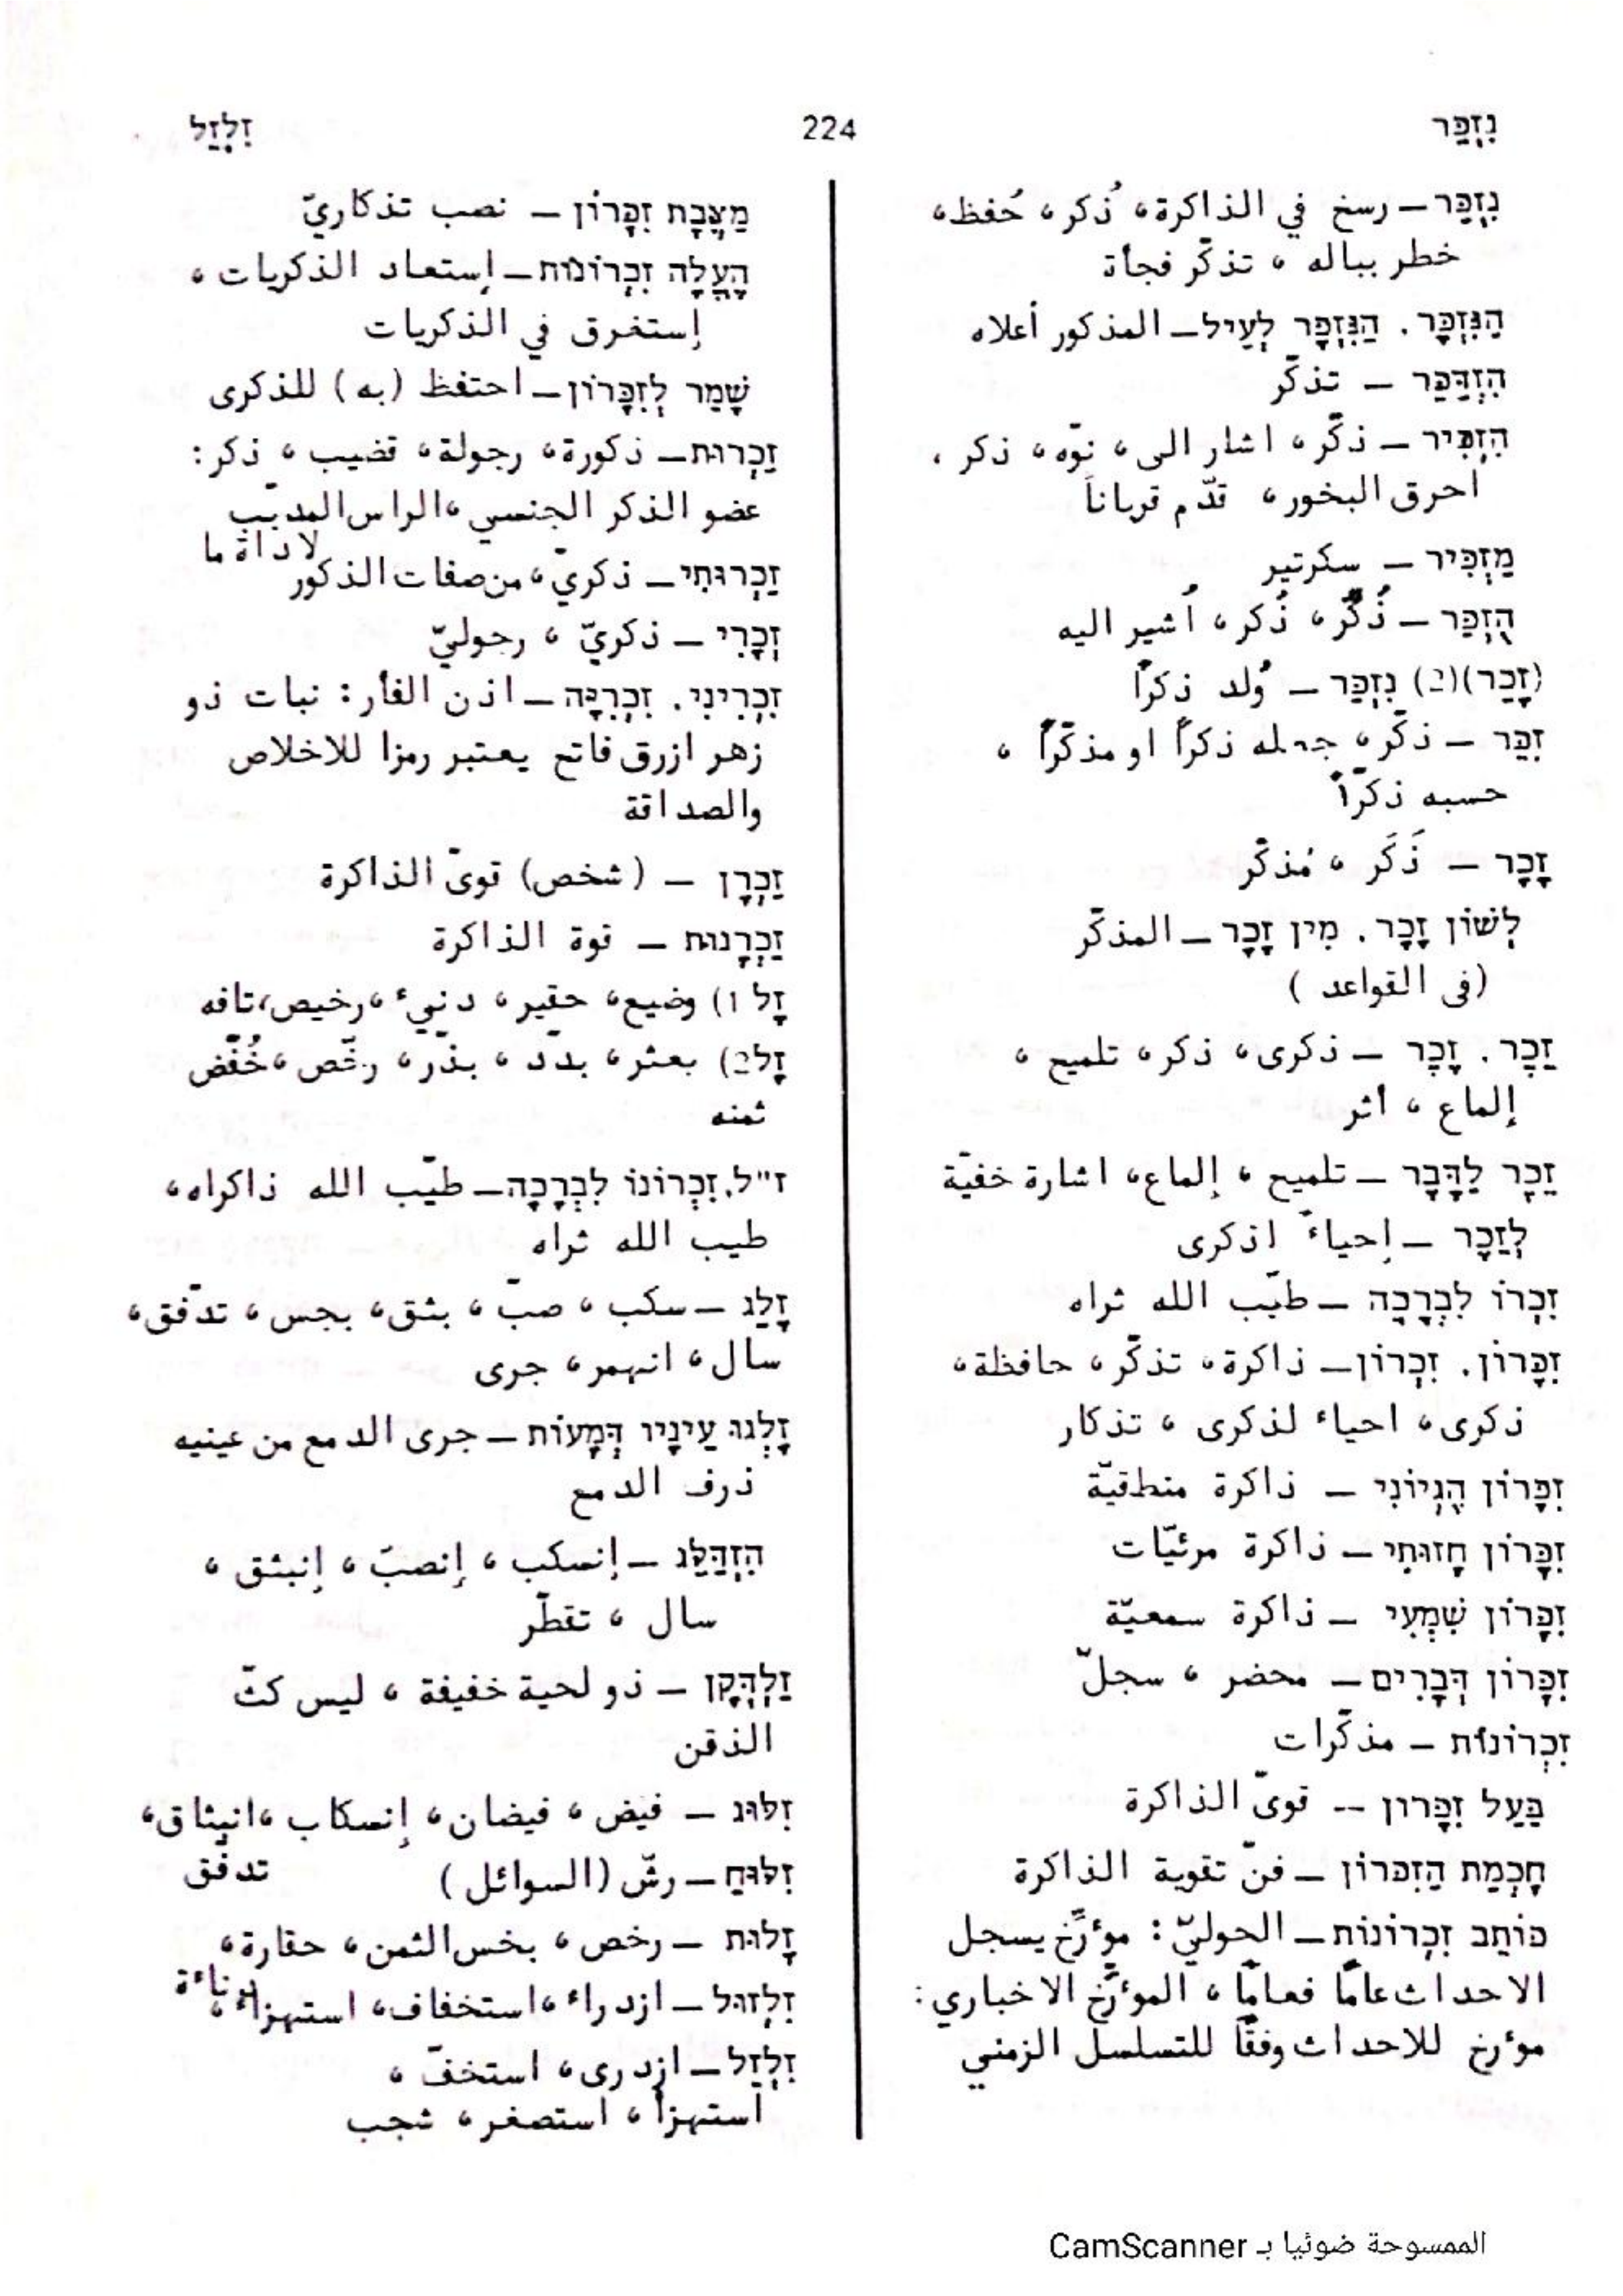 נִזְכַּר
224
זִלְזֵל
נִזְכַּר – رسخ في الذاكرة، ذُكر، حُفظ،
خطر بباله ، تذكّر فجأة
הַנִּזְכָּר. הַנִּזְכָּר לְעֵיל – المذكور أعلاه
הִזְדַּכֵּר – تذكّر
הִזְכִּיר – ذكّر، اشار الى، نوّه، ذكر ،
احرق البخور، قدّم قرباناً
מַזְכִּיר – سكرتير
הֻזְכַּר – ذُكِّر، ذُكر، أُشير اليه
(זָכַר)(2) נִזְכַּר – وُلد ذكراً
זִכֵּר – ذكّر، جعله ذكراً او مذكّراً ،
حسبه ذكرّاً
זָכָר – ذَكَر ، مُذكّر
לְשׁוֹן זָכָר. מִין זָכָר – المذكّر
(فى القواعد )
זֵכֶר. זֶכֶר – ذكرى، ذكر، تلميح ،
إلماع ، أثر
זֵכֶר לַדָּבָר – تلميح ، إلماع، اشارة خفيّة
לְזֵכֶר – إحياءً اذكرى
זִכְרוֹ לִבְרָכָה – طيّب الله ثراه
זִכָּרוֹן. זִכְרוֹן – ذاكرة، تذكّر، حافظة،
ذكرى، احياء لذكرى ، تذكار
זִכָּרוֹן הֶגְיוֹנִי – ذاكرة منطقيّة
זִכָּרוֹן חָזוּתִי – ذاكرة مرئيّات
זִכָּרוֹן שִׁמְעִי – ذاكرة سمعيّة
זִכְרוֹן דְּבָרִים – محضر ، سجلّ
זִכְרוֹנוֹת – مذكّرات
בַּעַל זִכָּרוֹן -- قوىّ الذاكرة
חָכְמַת הַזִּכָּרוֹן – فنّ تقوية الذاكرة
כּוֹתֵב זִכְרוֹנוֹת – الحوليّ: موُرِّخ يسجل
الاحداث عامًا فعامًا ، الموُرِّخ الاخباري:
موُرخ للاحداث وفقًا للتسلسل الزمني
מַצֶּבֶת זִכָּרוֹן – نصب تذكاريّ
הֶעֱלָה זִכְרוֹנוֹת – إستعاد الذكريات ،
إستغرق في الذكريات
שָׁמַר לְזִכָּרוֹן – احتفظ (به) للذكرى
זַכְרוּת – ذكورة، رجولة، قضيب ، ذكر:
عضو الذكر الجنسي ،الراس المدبّب
لاداة ما
זַכְרוּתִי – ذكريّ، من صفات الذكور
זְכָרִי – ذكريّ ، رجوليّ
זִכְרִינִי. זִכְרִיָּה – اذن الفأر: نبات ذو
زهر ازرق فاتح يعتبر رمزا للاخلاص
والصداقة
זַכְרָן – (شخص) قوىّ الذاكرة
זַכְרָנוּת – قوة الذاكرة
זָל 1) وضيع، حقير، دنيء، رخيص،تافه
זָל 2) بعثر، بدّد ، بذّر، رخّص ،خُفّض
ثمنه
ז"ל. זִכְרוֹנוֹ לִבְרָכָה – طيّب الله ذاكراه،
طيب الله ثراه
זָלַג – سكب ، صبّ ، بثق، بجس ، تدّفق،
سال، انهمر، جرى
זָלְגוּ עֵינָיו דְּמָעוֹת – جرى الدمع من عينيه
ذرف الدمع
הִזְדַּלֵּג – إنسكب ، إنصبّ ، إنبثق ،
سال ، تقطّر
זַלְדְּקָן – ذو لحية خفيفة ، ليس كثّ
الذقن
זִלּוּג – فيض ، فيضان، إنسكاب ،انبثاق،
تدفّق
זִלּוּחַ – رشّ (السوائل)
זָלוּת – رخص ، بخس الثمن، حقارة،
دناءة
זִלְזוּל – ازدراء ،استخفاف، استهزاء،
זִלְזֵל – ازدرى، استخفّ ،
استهزأ ، استصغر، شجب
الممسوحة ضوئيا بـ CamScanner